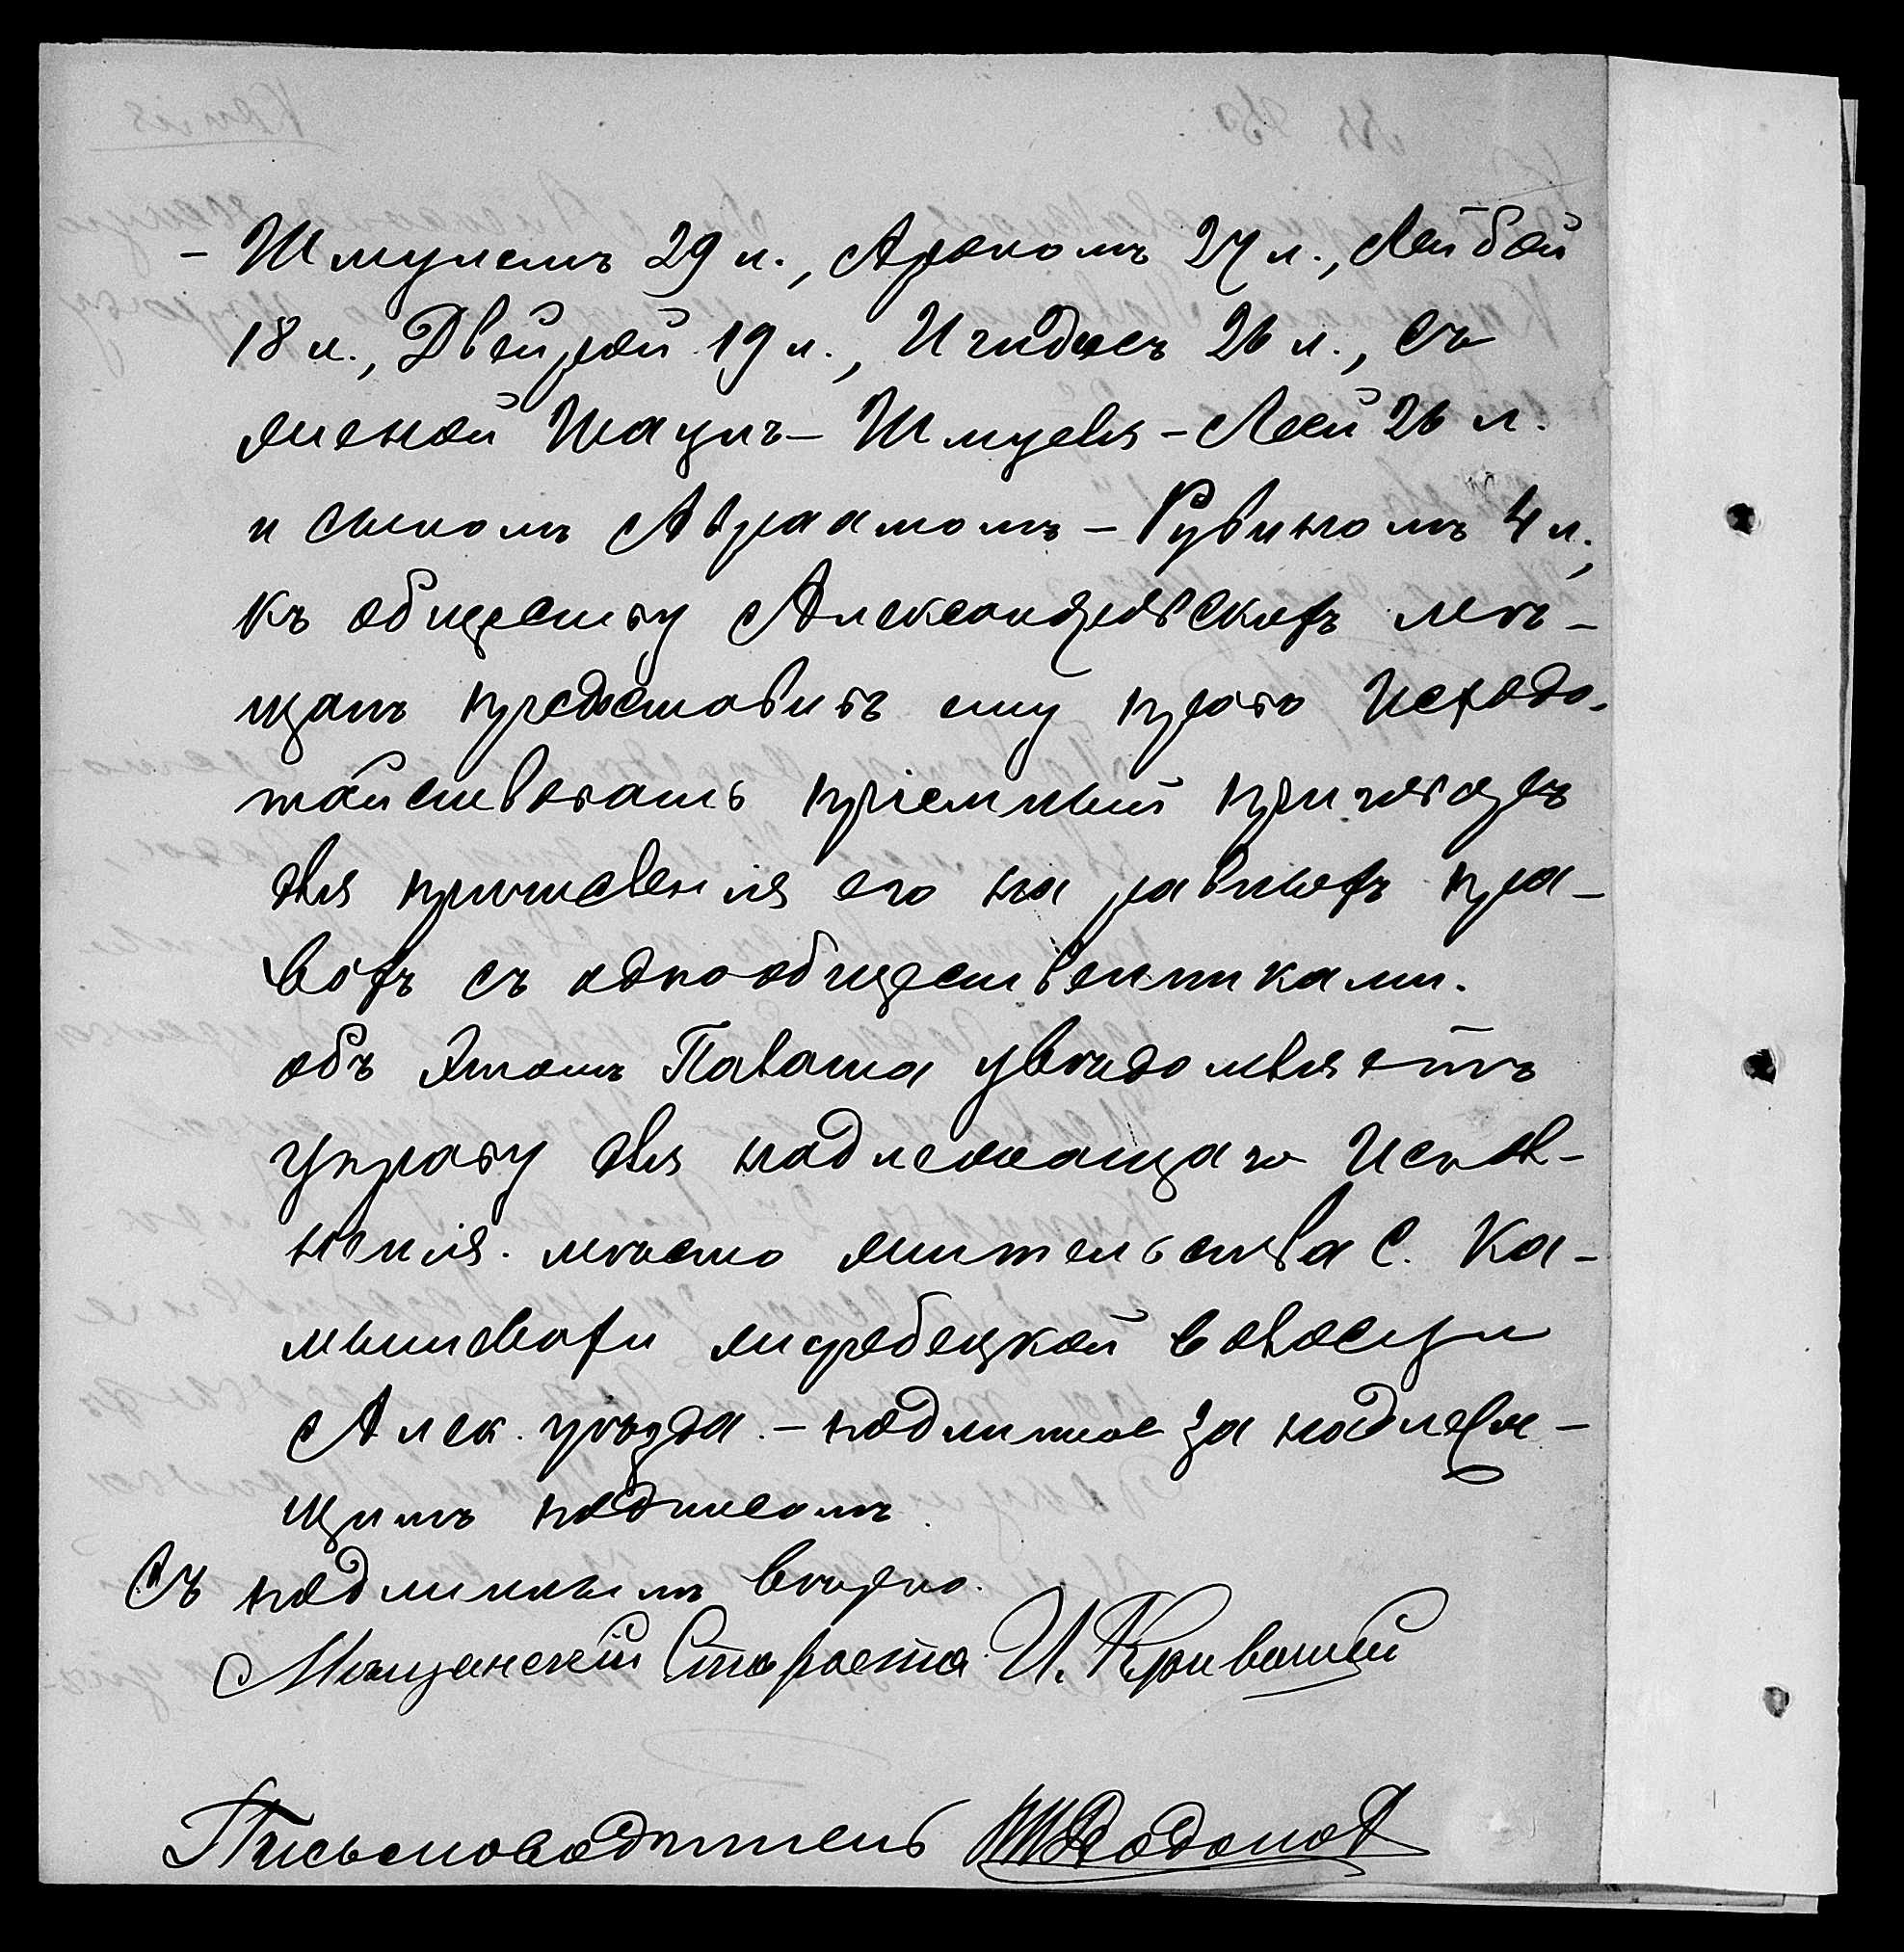 - Шмулемъ 29 л., Арономъ 27 л., Лейбой
18 л., Двейрой 19 л., Ицидосъ 26 л., съ
женой Шаулъ - Шмуля - Леей 26 л.
и сыномъ Авраамомъ - Рувиномъ 4 л.,
къ обществу Александровскихъ мѣ-
щанъ предоставивъ ему право исхода-
тайствовать пріемный приговоръ
для причисленія его на равныхъ пра-
вахъ съ однообщественниками.
объ этомъ Палата увѣдомляетъ
управу для надлежащаго испол-
ненія. мѣсто жительства С. Ка-
мышевахи жеребецкой волости
Алек. уѣзда. - подлинное за надлежа-
щимъ подписомъ.
Съ подлиннымъ вѣрно.
Мѣщанскій Староста И.
Письмоводитель